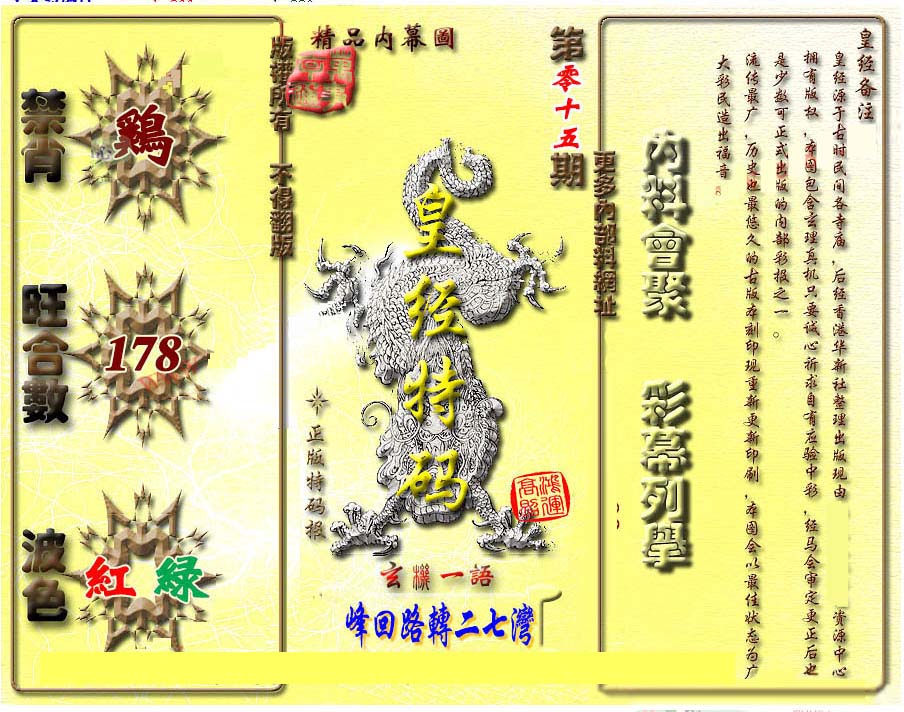 精品内幕圖
第零十五期
禁肖
鷄
旺合數
178
波色
紅 綠
版谱所有 不得翻版
皇经特码
正版特码报
鴻運高照
玄機一語
峰回路轉二七灣
更多内部料網址
内料會聚 彩幕列舉
皇经备注
皇经源于古时民间各寺庙,后经香港华新社整理出版现由
资源中心
拥有版权,本图包含玄理真机只要诚心祈求自有应验中彩,经马会审定更正后也
是少数可正式出版的内部彩报之一。
流传最广,历史也最悠久的古版本刻印现重新更新印刷,本图会以最佳状态为广
大彩民造出福音